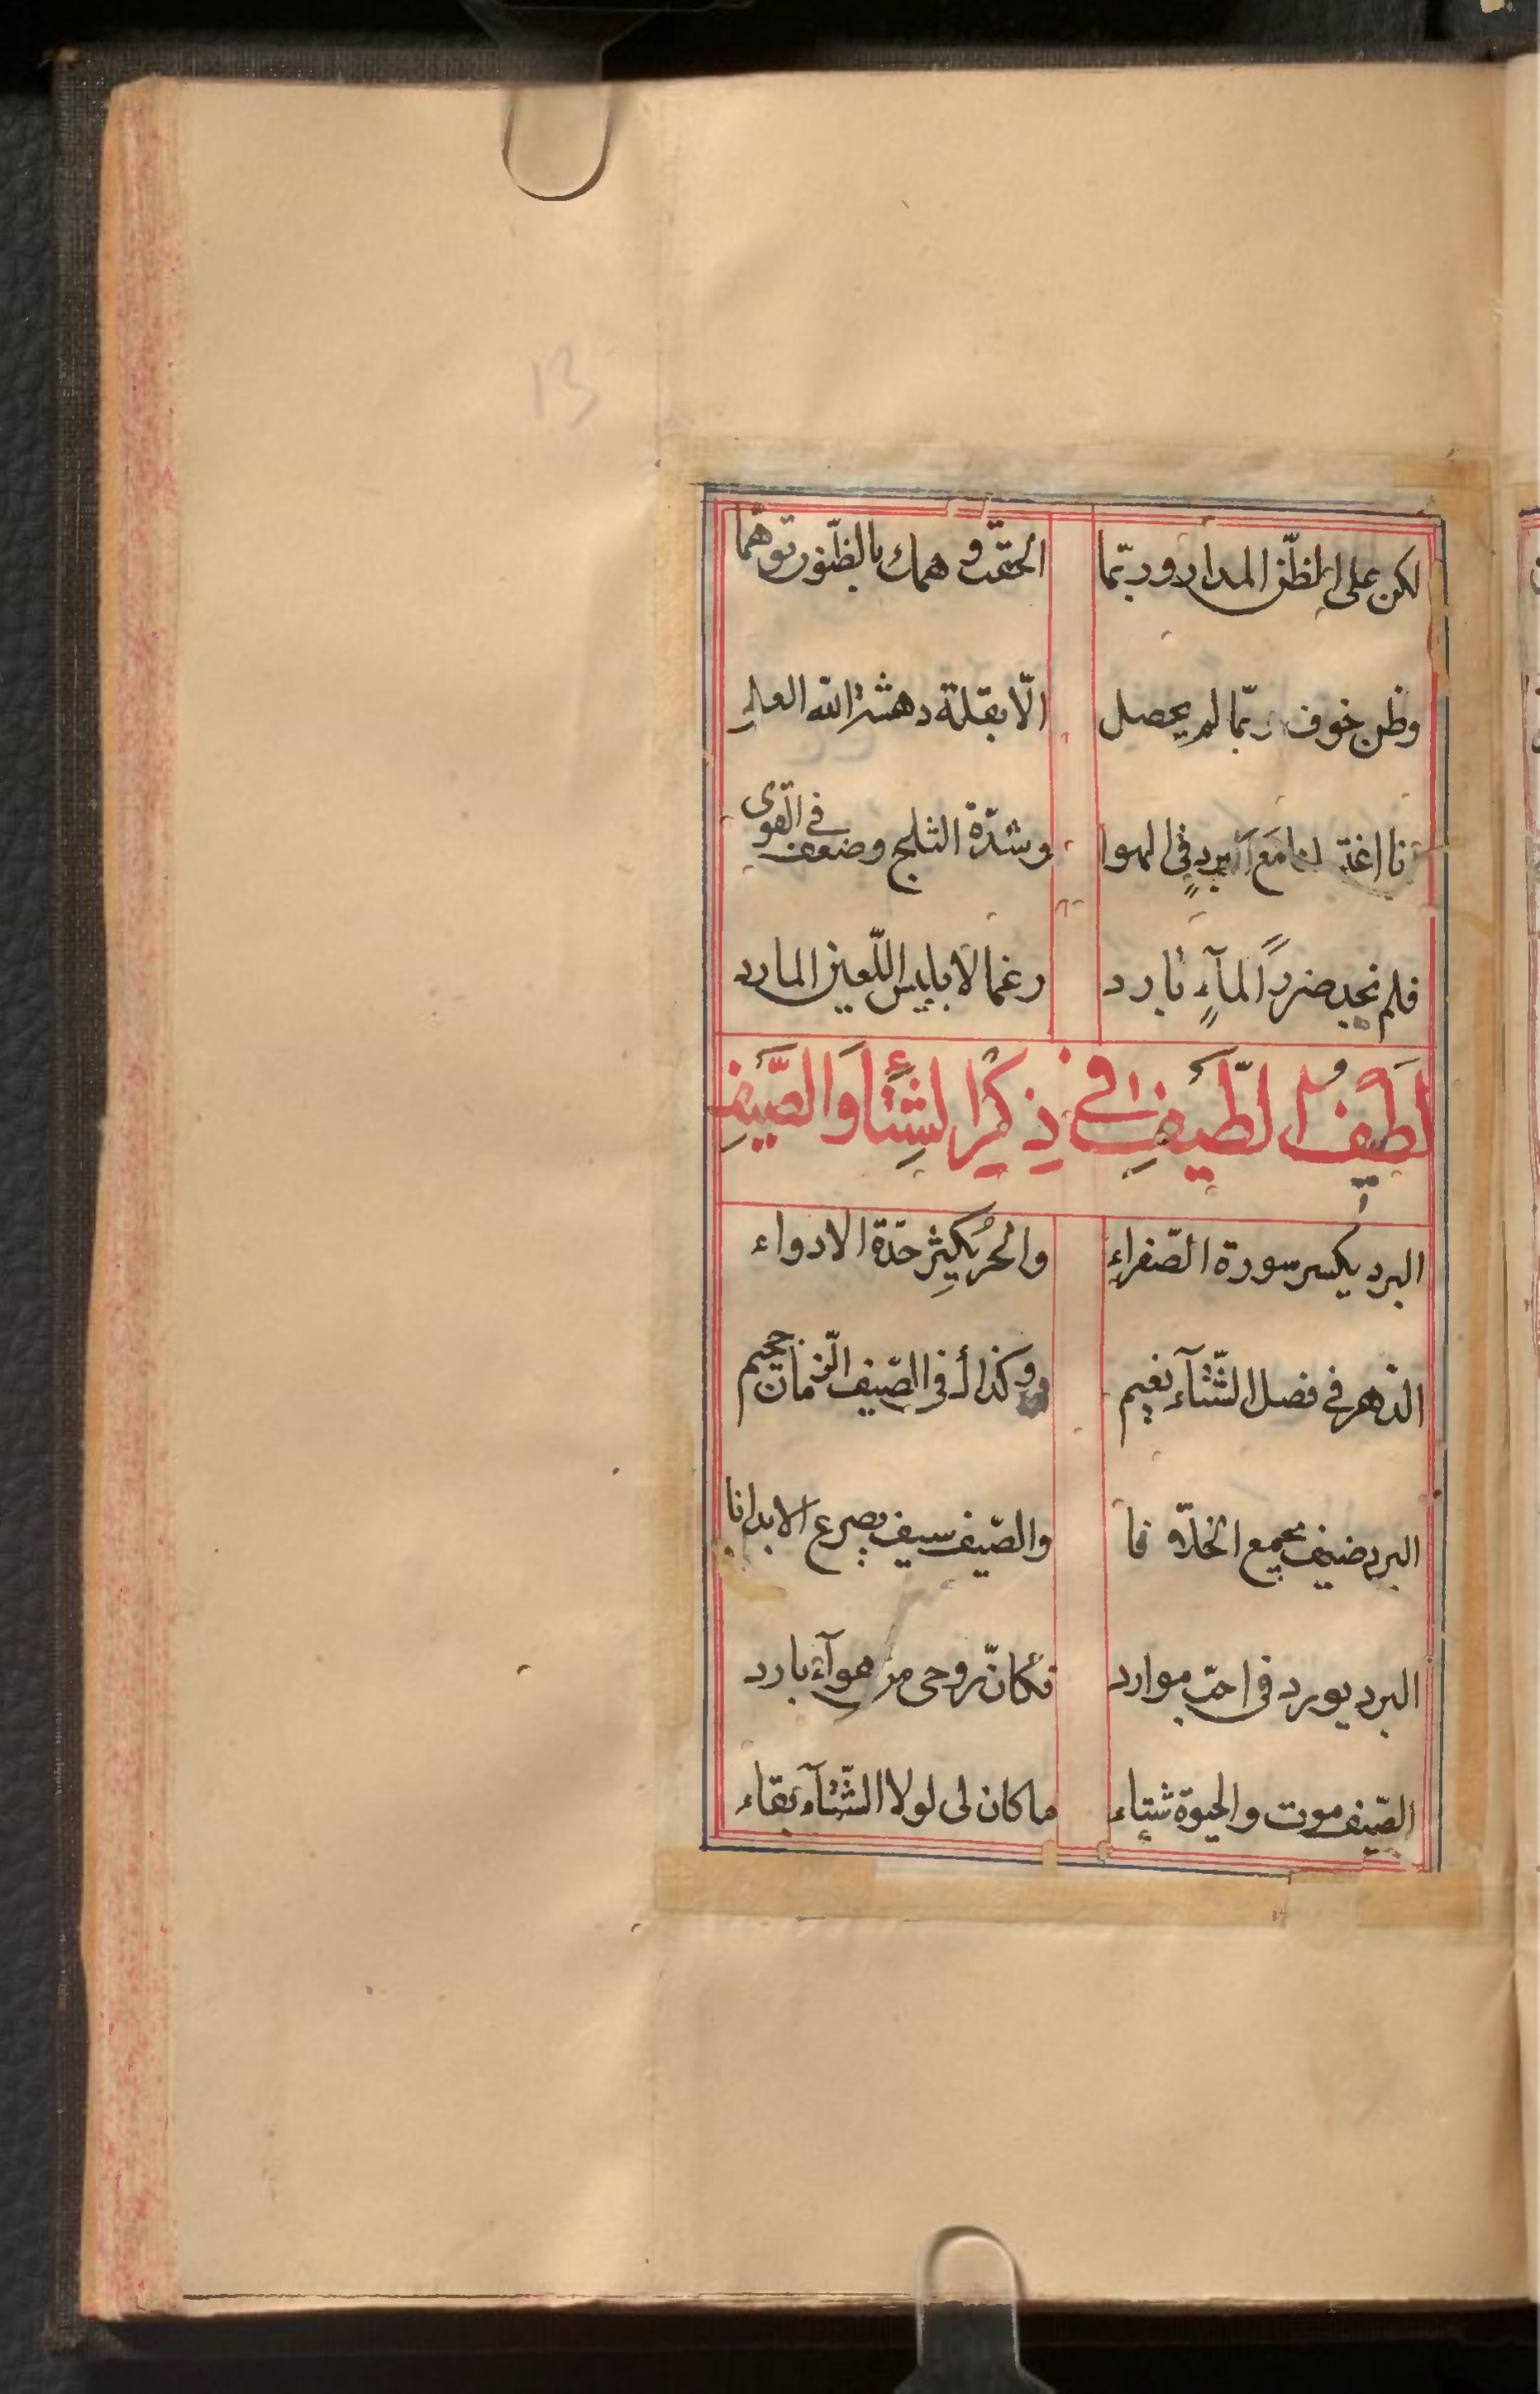 13
لكن على الظنّ المدار وربّما الحقت وهمك بالظنون توهّما
وظن خوف ربّما لم يحصل الّا بقلة دهشة الله العلي
مع البرد في الهوا وشدّة الثلج وضعف في القوى
فلم نجد ضرراً لمآءٍ بارد رغما لابليس اللّعين المارد
لَطيفُ اللّطَيفِ في ذِكْرِ الشِتَاءِ وَالصَّيفِ
البرد يكسر سورة الصّفراءِ والحرُ يكثِر حدّة الادواء
الدّهر في فصل الشّتآء نعيم وكذاك في الصّيف الزّمان جحيم
البرد ضيف يجمع الخلّا نا والصّيف سيف يصرع الابدانا
البرد يورد في احبّ موارد فكانّ روحى من هوآء بارد
الصّيف موت والحيوة شتاء ما كان لى لولا الشّتآء بقاء